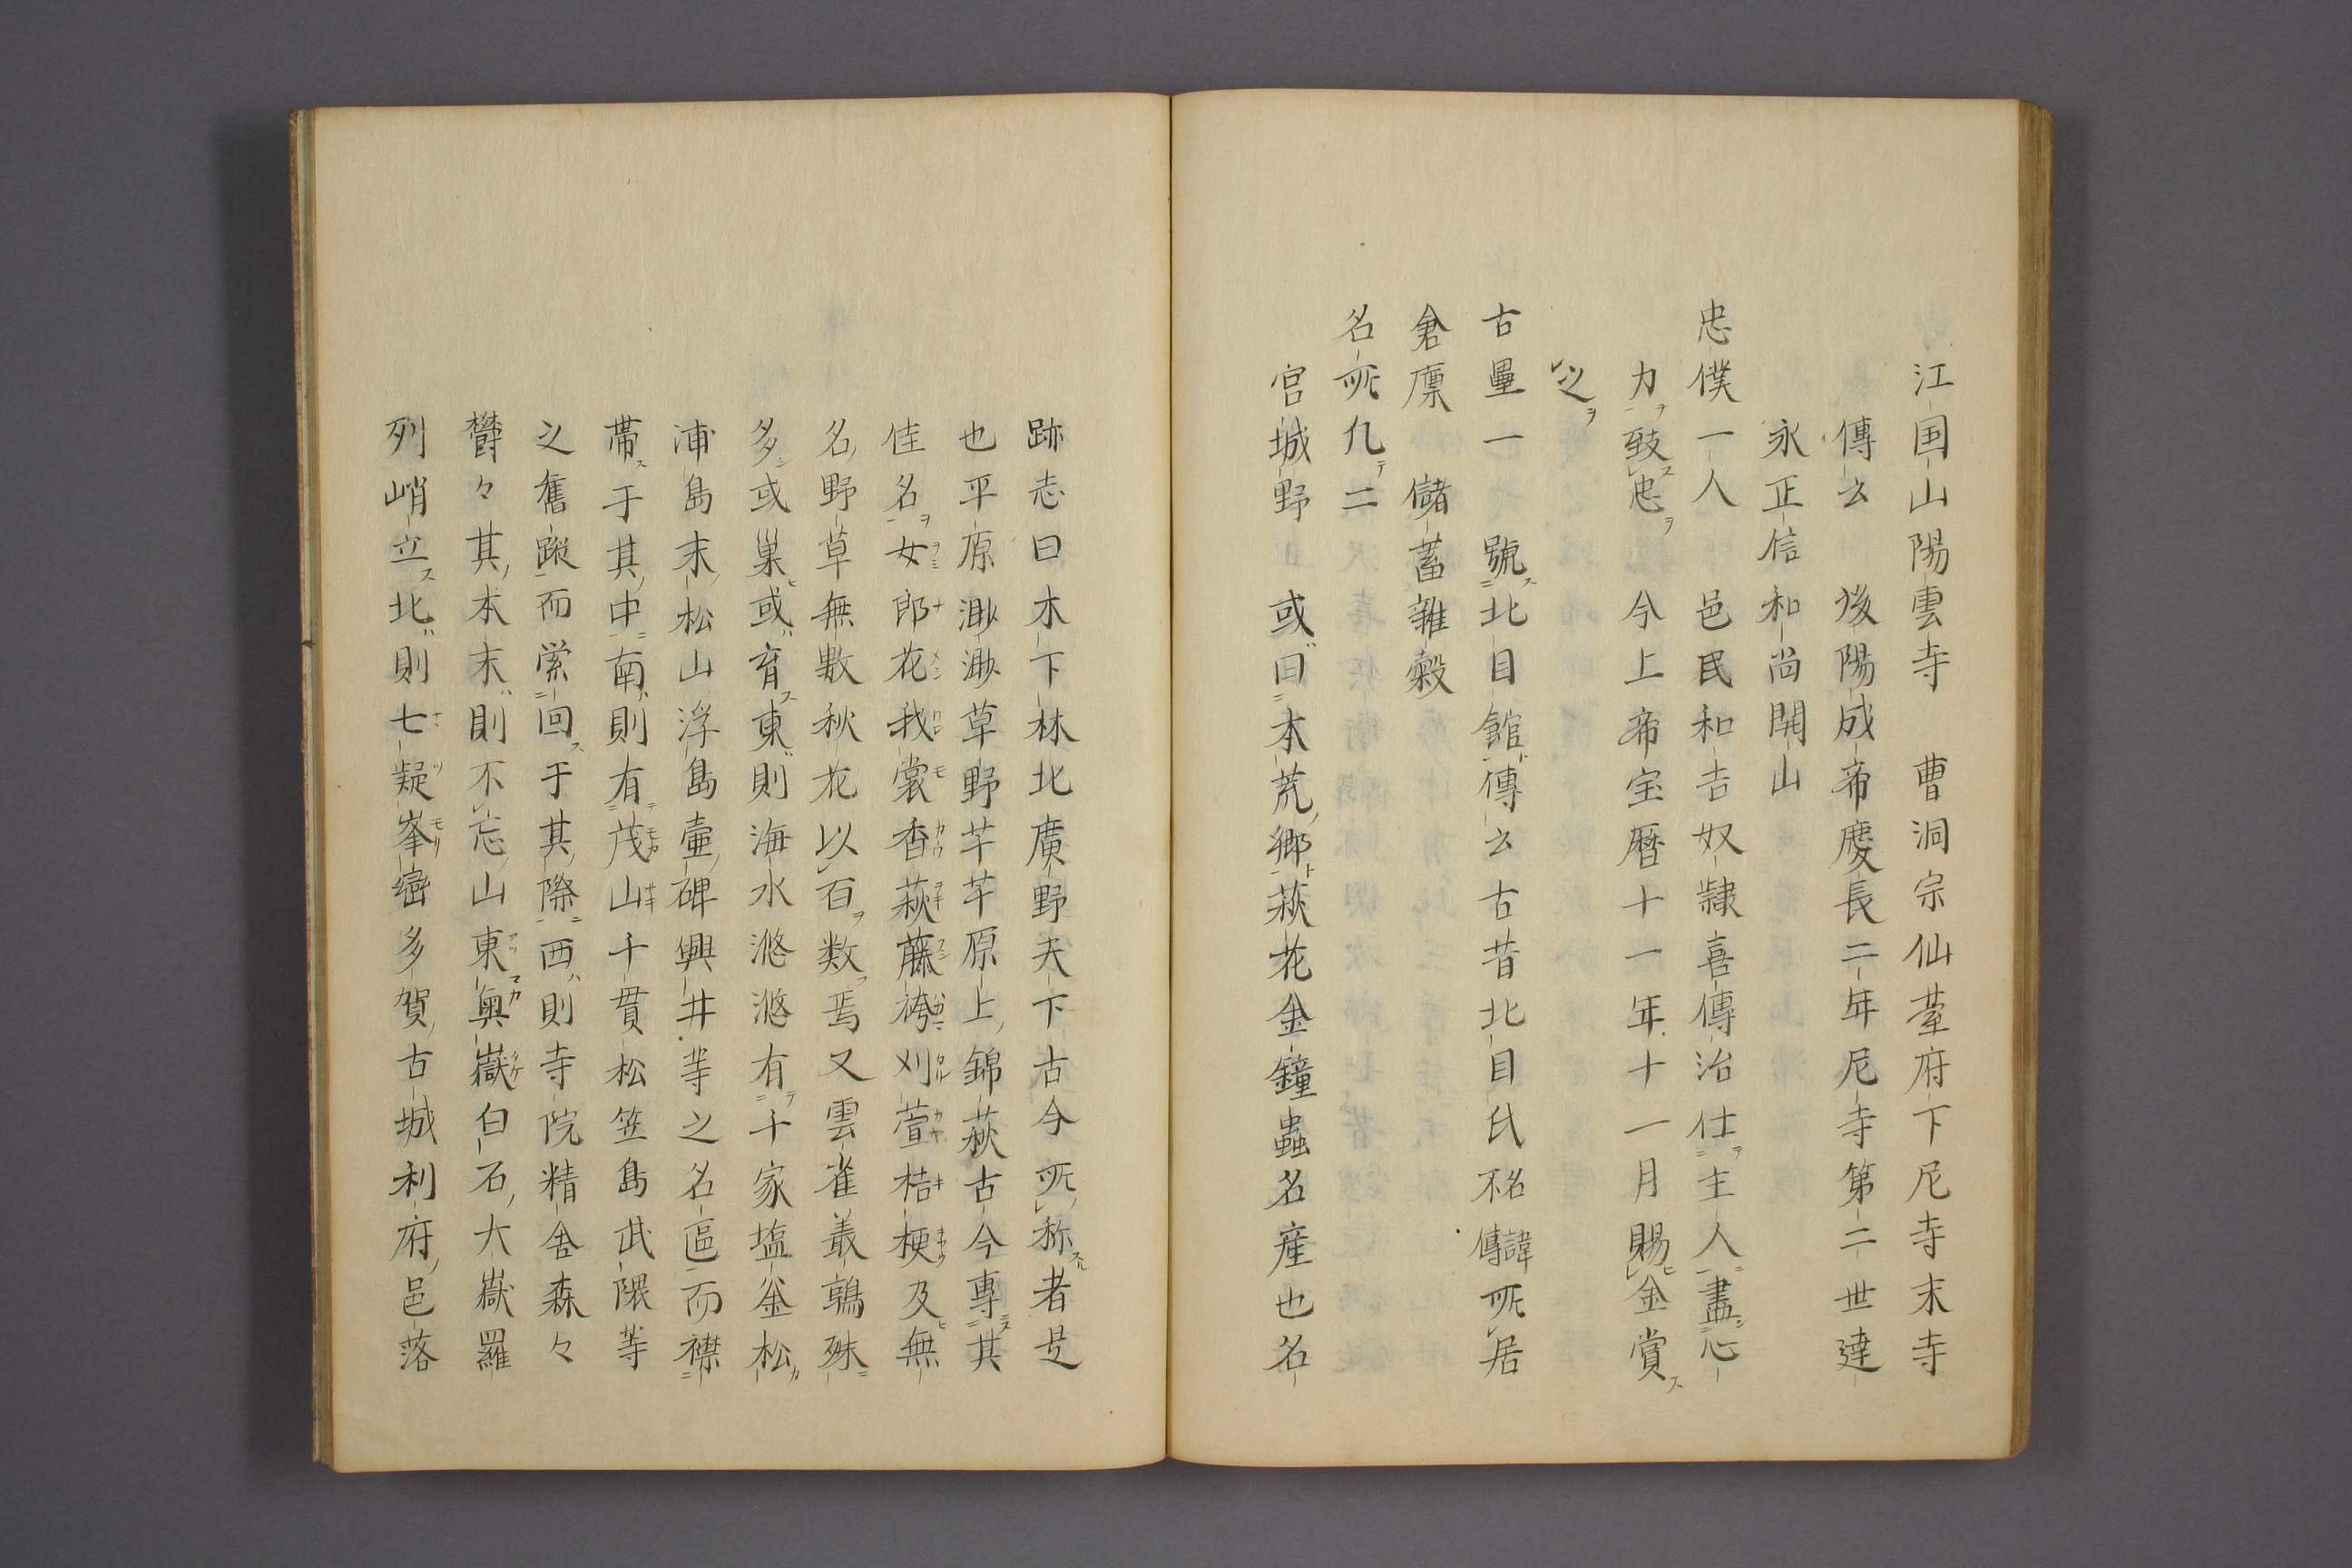 江国山陽雲寺　曹洞宗仙臺府下尼寺末寺
傳云　後陽成帝慶長二年尼寺第二世達
永正信和尚開山
忠僕一人　邑民和吉奴隷喜傳治仕主人盡心
力致忠　今上帝宝暦十一年十一月賜金賞
之
古壘一　號北目館傳云古昔北目氏不名諱傳所居
倉廩　儲蓄雜穀
名所九二
宮城野　或曰本荒郷萩花金鐘蟲名産也名
跡志曰木下林北廣野夫下古今所称者是
也平原渺渺草野芊芊原上錦萩古今專其
佳名女郎花我裳香萩藤袴刈萱桔梗及無
名野草無數秋花以百数焉又雲雀叢鶉殊
多或巣或育東則海水滺滺有千家塩釜松
浦島末松山浮島壷碑興井等之名區而襟
帯于其中南則有茂山千貫松笠島武隈等
之舊蹤而縈回于其際西則寺院精舎森々
欝々其本末則不忘山東奥嶽白石大嶽羅
列峭立北則七疑峯巒多賀古城利府邑落